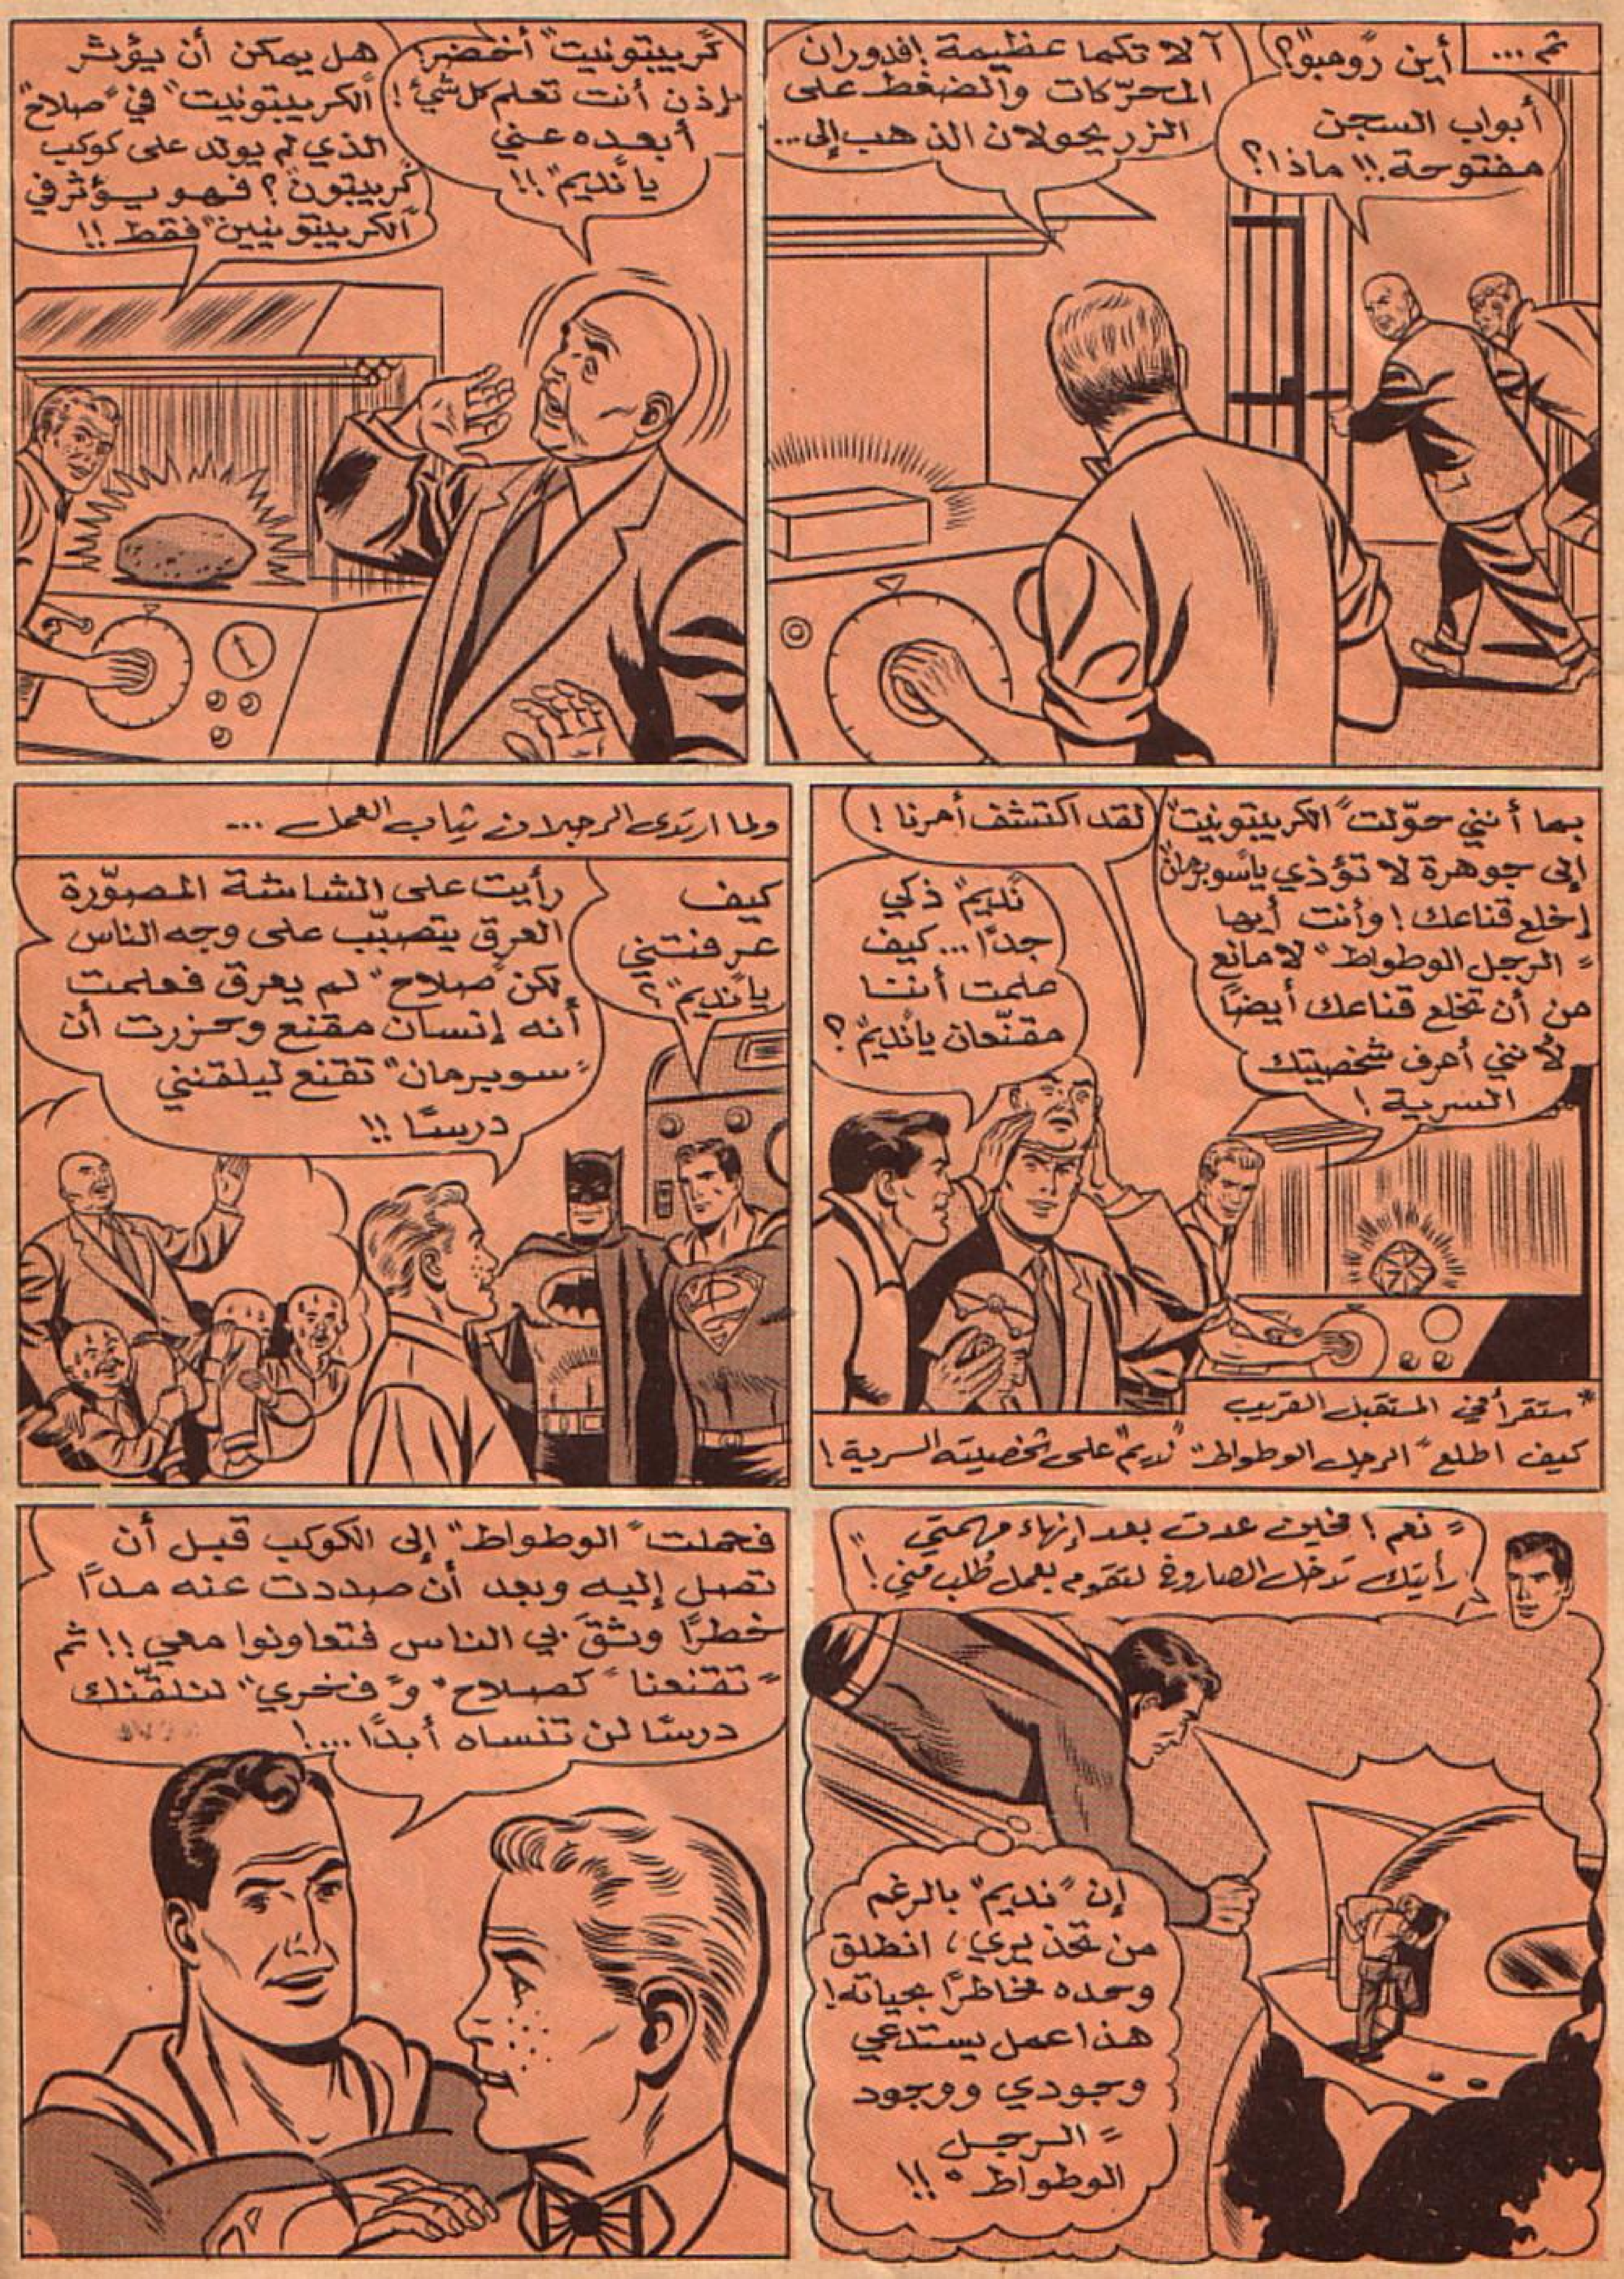 ثم ...
أين "رومبو"؟
أبواب السجن
مفتوحة!! ماذا؟
آلاتكما عظيمة! فدوران
المحرّكات والضغط على
الزر يحولان الذهب إلى...
"كريبتونيت" أخضر!
إذن أنت تعلم كل شيْ!
أبعده عني
يا "نديم"!!
هل يمكن أن يؤثر
"الكريبتونيت" في "صلاح"
الذي لم يولد على كوكب
"كريبتون"؟ فهو يؤثر في
"الكريبتونيين" فقط!!
بما أنني حوّلت "الكريبتونيت"
إلى جوهرة لا تؤذي يا "سوبرمان"
إخلع قناعك! وأنت أيها
"الرجل الوطواط" لا مانع
من أن تخلع قناعك أيضاً
لأنني أعرف شخصيتك
السرية!
لقد اكتشف أمرنا!
"نديم" ذكي
جدًا... كيف
علمت أننا
مقنّعان يا "نديم"؟
* ستقرأ في المستقبل القريب
كيف اطلع "الرجل الوطواط" "نديم" على شخصيته السرية!
ولما ارتدى الرجلان ثياب العمل ...
كيف
عرفتني
يا "نديم"؟
رأيت على الشاشة المصوّرة
العرق يتصبّب على وجه الناس
لكن "صلاح" لم يعرق فعلمت
أنه إنسان مقنع وحزرت أن
"سوبرمان" تقنع ليلقنني
درسًا!!
"نعم! فحين عدت بعد إنهاء مهمتي
رأيتك تدخل الصاروخ لتقوم بعمل طُلب مني!"
إن "نديم" بالرغم
من تحذيري، انطلق
وحده مخاطرًا بحياته!
هذا عمل يستدعي
وجودي ووجود
"الرجل
الوطواط"!!
فحملت "الوطواط" إلى الكوكب قبل أن
تصل إليه وبعد أن صددت عنه مدًا
خطرًا وثقَ بي الناس فتعاونوا معي!! ثم
"تقنعنا" كـ"صلاح" و"فخري" لنلقّنك
درسًا لن تنساه أبدًا....!